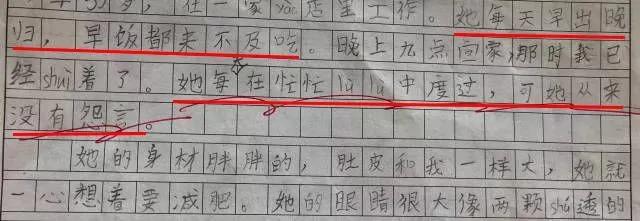 岁,在一家yao店里工作。她每天早出晚
归,早饭都来不及吃。晚上九点回家,那时我已
经shui着了。她每在忙忙lulu中度过,可她从来
没有怨言。
她的身材胖胖的,肚皮和我一样大,她就
一心想着要减肥。她的眼睛很大像两颗shui透的